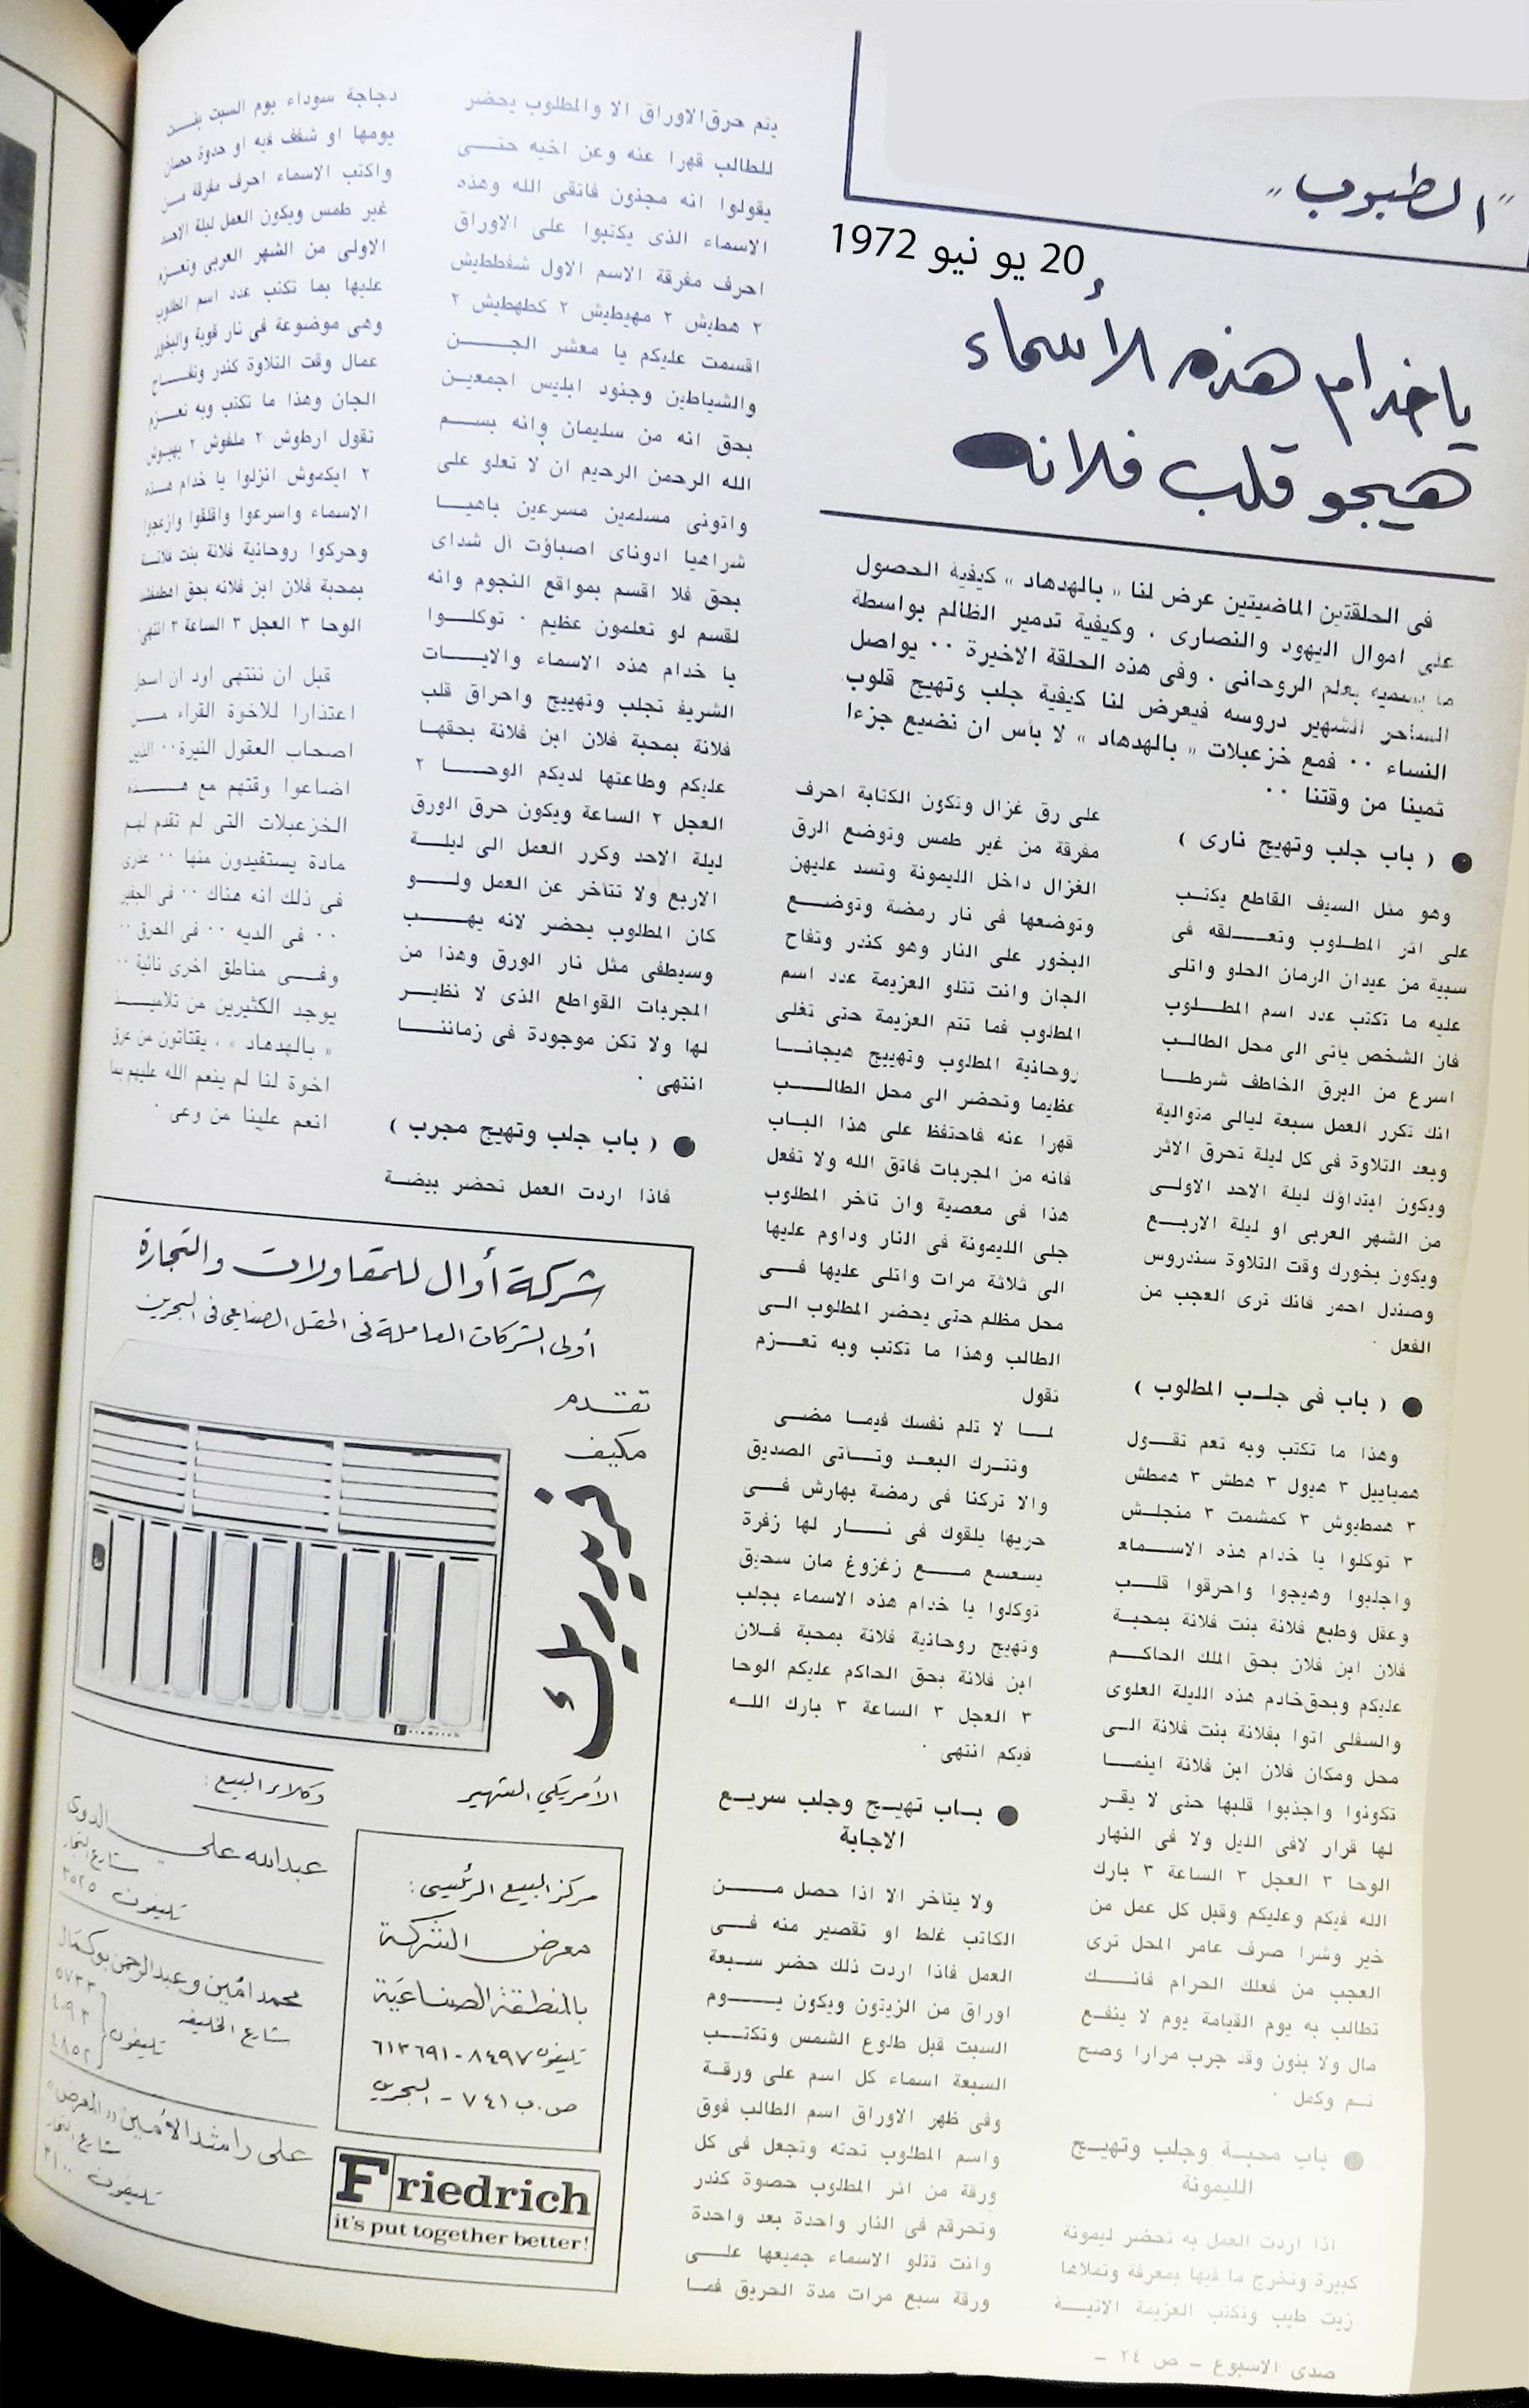 "الطبوب"
20 يو نيو 1972
يا خدام هذه الأسماء
هيجو قلب فلانه
فى الحلقتين الماضيتين عرض لنا « بالهدهاد » كيفية الحصول
على اموال اليهود والنصارى ، وكيفية تدمير الظالم بواسطة
ما يسميه بعلم الروحانى . وفى هذه الحلقة الاخيرة ٠٠ يواصل
الساحر الشهير دروسه فيعرض لنا كيفية جلب وتهيج قلوب
النساء ٠٠ فمع خزعبلات « بالهدهاد » لا بأس ان نضيع جزءا
ثمينا من وقتنا ٠٠
● ( باب جلب وتهيج نارى )
وهو مثل السيف القاطع يكتب
على اثر المطلوب وتعلقه فى
سيبة من عيدان الرمان الحلو واتلى
عليه ما تكتب عدد اسم المطلوب
فان الشخص يأتى الى محل الطالب
اسرع من البرق الخاطف شرطا
انك تكرر العمل سبعة ليالى متوالية
وبعد التلاوة فى كل ليلة تحرق الاثر
ويكون ابتداؤك ليلة الاحد الاولى
من الشهر العربى او ليلة الاربع
ويكون بخورك وقت التلاوة سندروس
وصندل احمر فانك ترى العجب من
الفعل .
● ( باب فى جلب المطلوب )
وهذا ما تكتب وبه تعم تقول
همياييل ٣ هيول ٣ هطش ٣ همطش
٣ همطيوش ٣ كمشمت ٣ منجلش
٣ توكلوا يا خدام هذه الاسماء
واجلبوا وهيجوا واحرقوا قلب
وعقل وطبع فلانة بنت فلانة بمحبة
فلان ابن فلان بحق الملك الحاكم
عليكم وبحق خادم هذه الليلة العلوى
والسفلى اتوا بفلانة بنت فلانة الى
محل ومكان فلان ابن فلانة اينما
تكونوا واجذبوا قلبها حتى لا يقر
لها قرار لافى الليل ولا فى النهار
الوحا ٣ العجل ٣ الساعة ٣ بارك
الله فيكم وعليكم وقبل كل عمل من
خير وشرا صرف عامر المحل ترى
العجب من فعلك الحرام فانك
تطالب به يوم القيامة يوم لا ينفع
مال ولا بنون وقد جرب مرارا وصح
تم وكمل .
● باب محبة وجلب وتهيج
الليمونة
اذا اردت العمل به تحضر ليمونة
كبيرة وتخرج ما فيها بمعرفة وتملاها
زيت طيب وتكتب العزيمة الاتية
على رق غزال وتكون الكتابة احرف
مفرقة من غير طمس وتوضع الرق
الغزال داخل الليمونة وتسد عليهن
وتوضعها فى نار رمضة وتوضع
البخور على النار وهو كندر وتفاح
الجان وانت تتلو العزيمة عدد اسم
المطلوب فما تتم العزيمة حتى تغلى
روحانية المطلوب وتهييج هيجانا
عظيما وتحضر الى محل الطالب
قهرا عنه فاحتفظ على هذا الباب
فانه من المجربات فاتق الله ولا تفعل
هذا فى معصية وان تاخر المطلوب
جلى الليمونة فى النار وداوم عليها
الى ثلاثة مرات واتلى عليها فى
محل مظلم حتى يحضر المطلوب الى
الطالب وهذا ما تكتب وبه تعزم
تقول
لما لا تلم نفسك فيما مضى
وتترك البعد وتاتى الصديق
والا تركنا فى رمضة بهارش فى
حربها يلقوك فى نار لها زفرة
يسعسع مع زغزوغ مان سحيق
توكلوا يا خدام هذه الاسماء بجلب
وتهيج روحانية فلانة بمحبة فلان
ابن فلانة بحق الحاكم عليكم الوحا
٣ العجل ٣ الساعة ٣ بارك الله
فيكم انتهى .
● باب تهيج وجلب سريع
الاجابة
ولا يتاخر الا اذا حصل من
الكاتب غلط او تقصير منه فى
العمل فاذا اردت ذلك حضر سبعة
اوراق من الزيتون ويكون يوم
السبت قبل طلوع الشمس وتكتب
السبعة اسماء كل اسم على ورقة
وفى ظهر الاوراق اسم الطالب فوق
واسم المطلوب تحته وتجعل فى كل
ورقة من اثر المطلوب حصوة كندر
وتحرقم فى النار واحدة بعد واحدة
وانت تتلو الاسماء جميعها على
ورقة سبع مرات مدة الحريق فما
يتم حرق الاوراق الا والمطلوب يحضر
للطالب قهرا عنه وعن اخيه حتى
يقولوا انه مجنون فاتقى الله وهذه
الاسماء الذى يكتبوا على الاوراق
احرف مفرقة الاسم الاول شفططيش
٢ هطيش ٢ مهيطيش ٢ كطهطيش ٢
اقسمت عليكم يا معشر الجن
والشياطين وجنود ابليس اجمعين
بحق انه من سليمان وانه بسم
الله الرحمن الرحيم ان لا تعلو على
واتونى مسلمين مسرعين باهيا
شراهيا ادوناى اصباؤت ال شداى
بحق فلا اقسم بمواقع النجوم وانه
لقسم لو تعلمون عظيم . توكلوا
يا خدام هذه الاسماء والايات
الشريف تجلب وتهييج واحراق قلب
فلانة بمحبة فلان ابن فلانة بحقها
عليكم وطاعتها لديكم الوحا ٢
العجل ٢ الساعة ويكون حرق الورق
ليلة الاحد وكرر العمل الى ليلة
الاربع ولا تتأخر عن العمل ولو
كان المطلوب يحضر لانه يهب
وسيطفى مثل نار الورق وهذا من
المجربات القواطع الذى لا نظير
لها ولا تكن موجودة فى زماننا
انتهى .
● ( باب جلب وتهيج مجرب )
فاذا اردت العمل تحضر بيضة
دجاجة سوداء يوم السبت بنت
يومها او شقف فيه او حدوة حصان
واكتب الاسماء احرف مفرقة من
غير طمس ويكون العمل ليلة الاحد
الاولى من الشهر العربى وتعزم
عليها بما تكتب عدد اسم المطلوب
وهى موضوعة فى نار قوية والبخور
عمال وقت التلاوة كندر وتفاح
الجان وهذا ما تكتب وبه تعزم
تقول ارطوش ٢ ملفوش ٢ بهبوش
٢ ايكموش انزلوا يا خدام هذه
الاسماء واسرعوا واقلقوا وازعجوا
وحركوا روحانية فلانة بنت فلانة
بمحبة فلان ابن فلانه بحق
الوحا ٣ العجل ٣ الساعة ٣ انتهى
قبل ان ننتهى اود ان اسجل
اعتذارا للاخوة القراء من
اصحاب العقول النيرة ٠٠ الذين
اضاعوا وقتهم مع هذه
الخزعبلات التى لم تقدم لهم
مادة يستفيدون منها ٠٠ عذرى
فى ذلك انه هناك ٠٠ فى الجفير
٠٠ فى الديه ٠٠ فى الحرق ٠٠
وفى مناطق اخرى نائية ٠٠
يوجد الكثيرين من تلاميذ
« بالهدهاد » ، يقتاتون من عرق
اخوة لنا لم ينعم الله عليهم بما
انعم علينا من وعى .
شركة أوال للمقاولات والتجارة
أولى الشركات العاملة فى الحقل الصناعى فى البحرين
تقدم
مكيف
فريدريك
الأمريكي الشهير
مركز البيع الرئيسى:
معرض الشركة
بالمنطقة الصناعية
تليفون ٨٤٩٧ - ٦١٣٦٩١
ص.ب ٧٤١ - البحرين
Friedrich
it's put together better!
وكلاء البيع:
عبدالله علي الدوى
شارع التجار
تليفون ٣٥٢٥
محمد امين وعبدالرحمن بوكمال
شارع الخليفه
تليفون ٥٧٣٣
٤٠٩٢
٤٨٥٢
على راشد الأمين "المعرض"
شارع التجار
تليفون ٣١٠٠
صدى الاسبوع - ص ٢٤ -